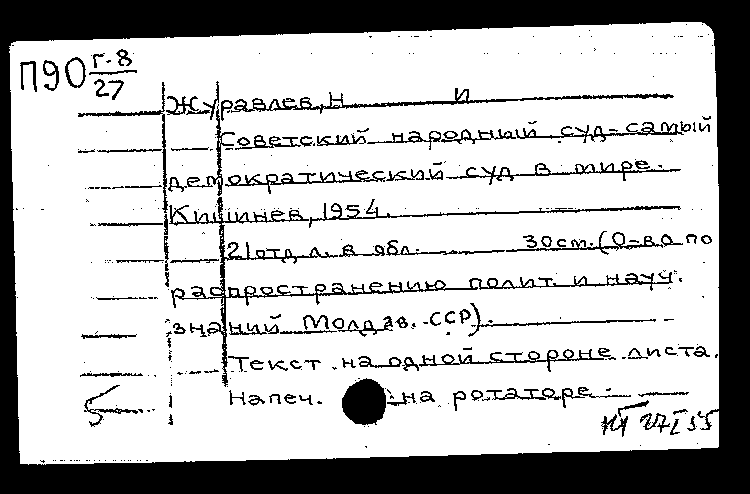 П90 Г-8
27
Журавлев, Н И
Советский народный суд-самый
демократический суд в мире.
Кишинев, 1954.
21отд.л. в обл. 30см. (О-во по
распространению полит. и науч.
знаний Молдав. ССР).
Текст на одной стороне листа.
Напеч. на ротаторе.